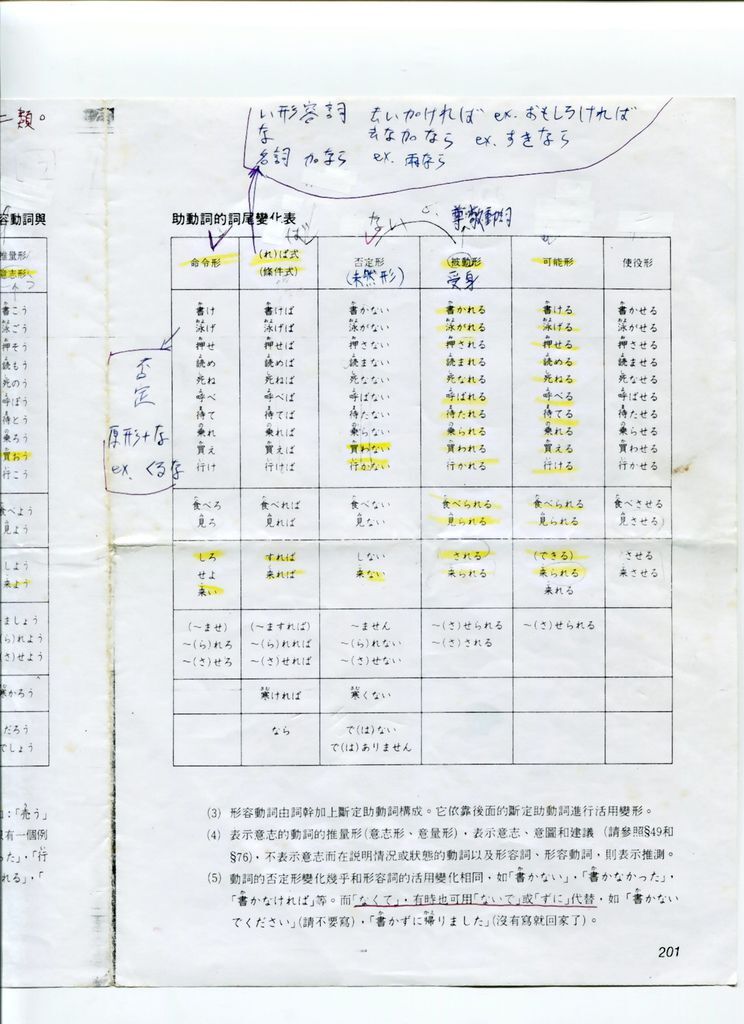 二類。
い形容詞 去いかければ ex. おもしろければ
な 去なかなら ex. すきなら
名詞 かなら ex. 雨なら
容動詞與
助動詞的詞尾變化表
ば
ない
尊敬動詞
推量形
意志形
命令形 (れ)ば式 否定形 (被動形 可能形 使役形
(條件式) (未然形) 受身
書こう 書け 書けば 書かない 書かれる 書ける 書かせる
泳ごう 泳げ 泳げば 泳がない 泳がれる 泳げる 泳がせる
押そう 押せ 押せば 押さない 押される 押せる 押させる
読もう 読め 読めば 読まない 読まれる 読める 読ませる
死のう 死ね 死ねば 死なない 死なれる 死ねる 死なせる
呼ぼう 呼べ 呼べば 呼ばない 呼ばれる 呼べる 呼ばせる
待とう 待て 待てば 待たない 待たれる 待てる 待たせる
乗ろう 乗れ 乗れば 乗らない 乗られる 乗れる 乗らせる
買おう 買え 買えば 買わない 買われる 買える 買わせる
行こう 行け 行けば 行かない 行かれる 行ける 行かせる
否定
原形+な
ex. くるな
食べよう 食べろ 食べれば 食べない 食べられる 食べられる 食べさせる
見よう 見ろ 見れば 見ない 見られる 見られる 見させる
しよう しろ すれば しない される (できる) させる
来よう せよ 来れば 来ない 来られる 来られる 来させる
来い 来れる
ましょう (～ませ) (～ますれば) ～ません ～(さ)せられる ～(さ)せられる
ら)れよう ～(ら)れろ ～(ら)れれば ～(ら)れない ～(さ)される
さ)せよう ～(さ)せろ ～(さ)せれば ～(さ)せない
寒かろう 寒ければ 寒くない
だろう なら で(は)ない
でしょう で(は)ありません
:「売う」
只有一個例
った」,「行
れる」,「
(3) 形容動詞由詞幹加上斷定助動詞構成。它依靠後面的斷定助動詞進行活用變形。
(4) 表示意志的動詞的推量形(意志形、意量形),表示意志、意圖和建議 (請參照§49和
§76),不表示意志而在説明情況或狀態的動詞以及形容詞、形容動詞,則表示推測。
(5) 動詞的否定形變化幾乎和形容詞的活用變化相同,如「書かない」,「書かなかった」,
「書かなければ」等。而「なくて」,有時也可用「ないで」或「ずに」代替,如「書かない
でください」(請不要寫),「書かずに帰りました」(沒有寫就回家了)。
201